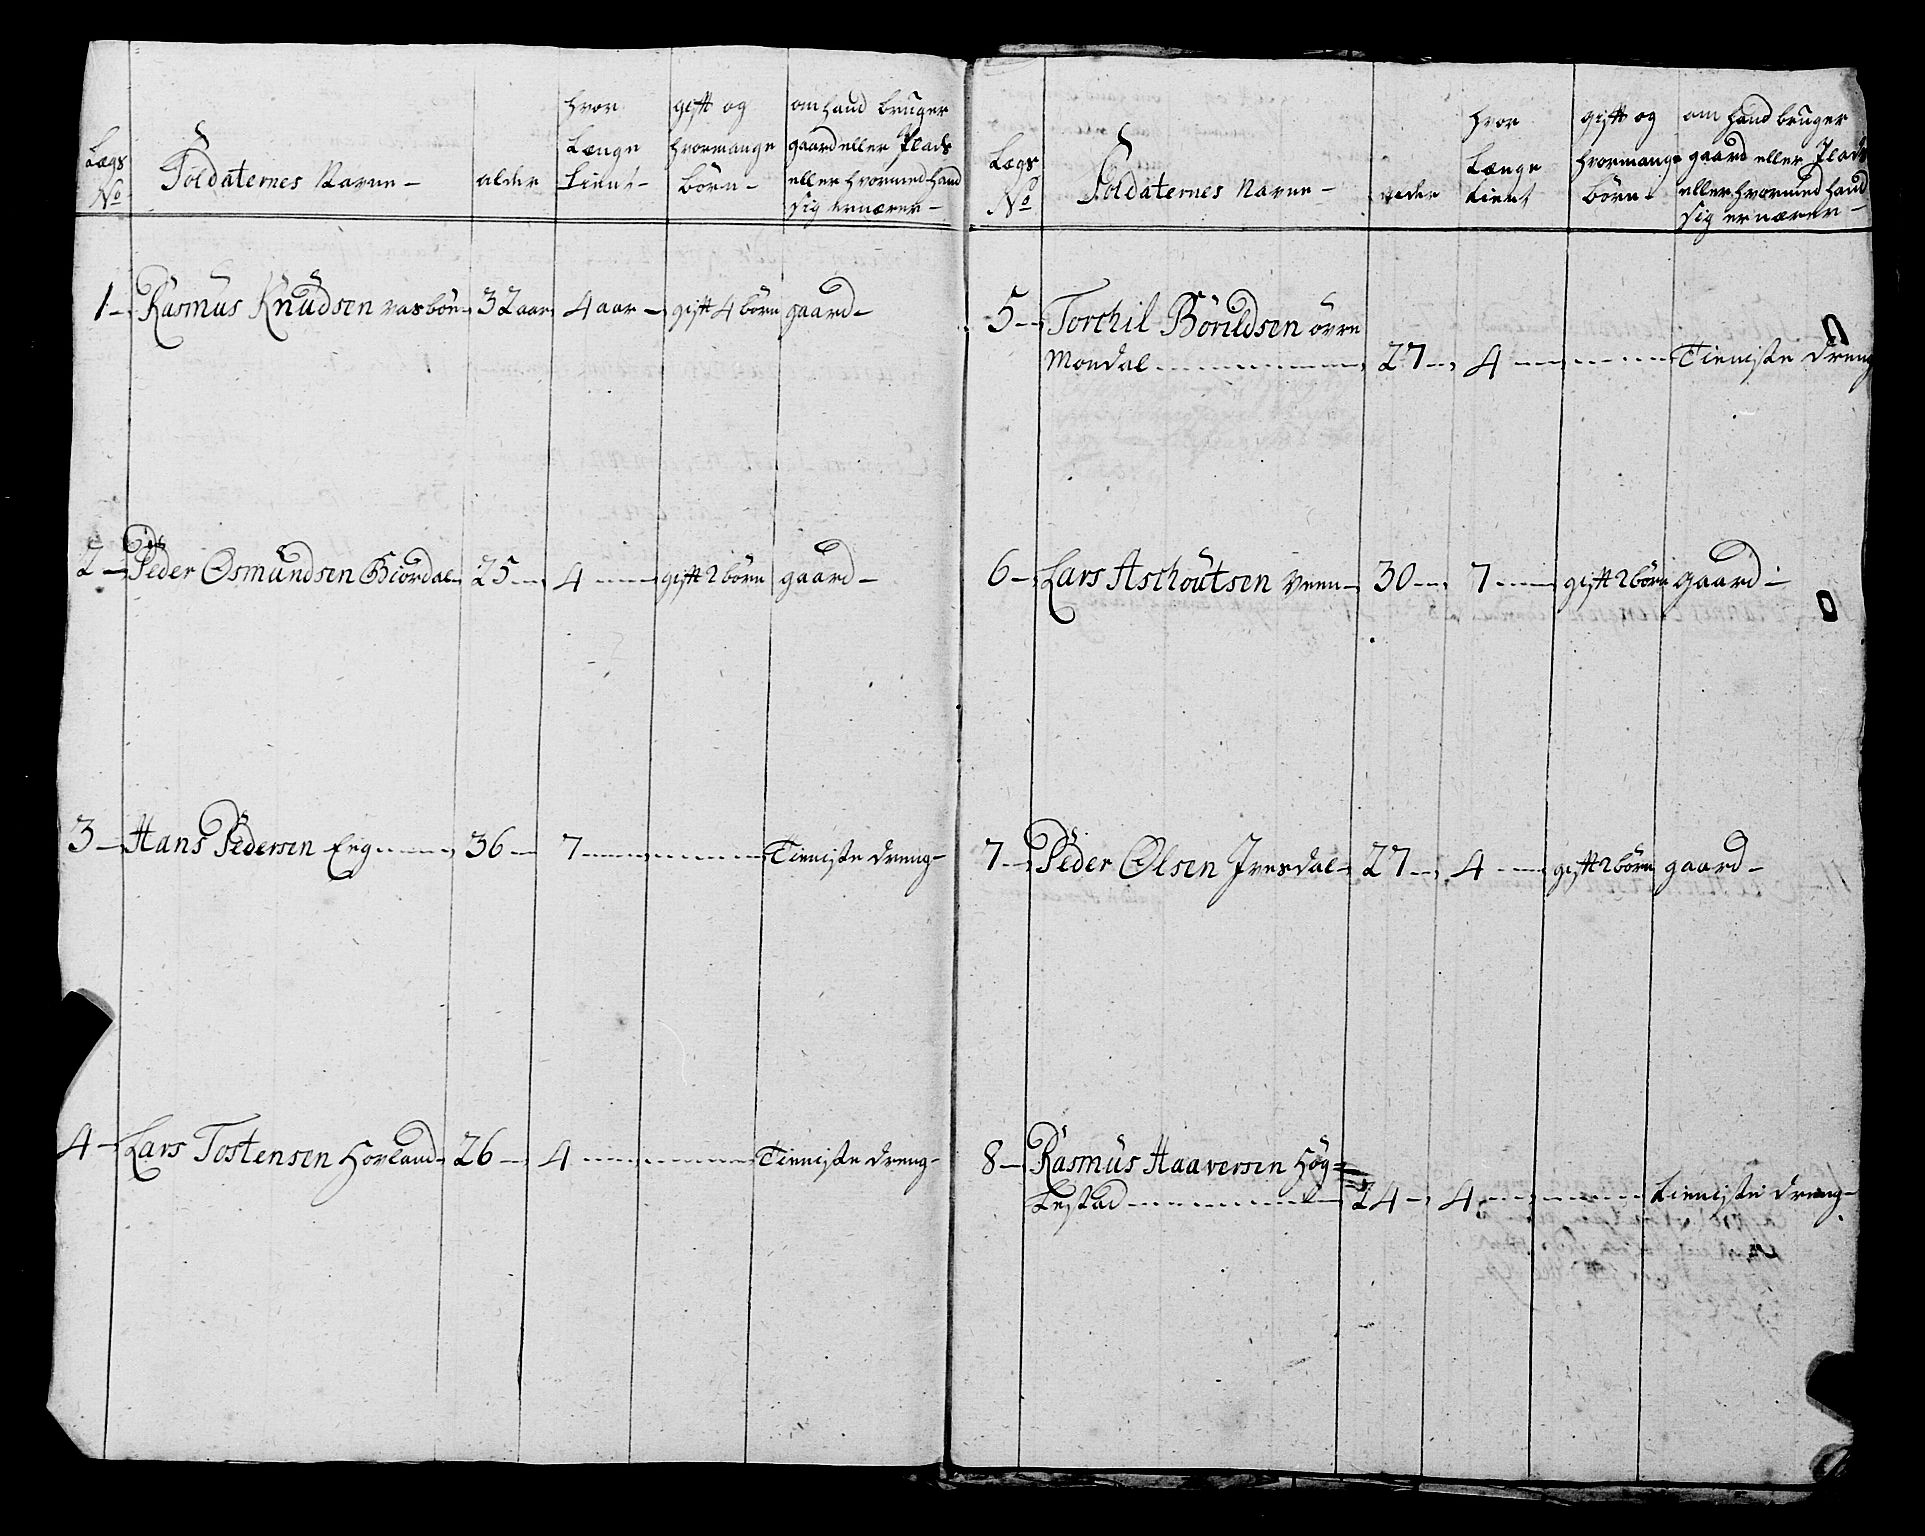 Lægs No | Soldaternes Navne – | alder | hvor Længe tient – | gift og hvormange börn – | om hand bruger gaard eller Plads eller hvormed hand sig ernærer –
1 – Rasmus Knudsen Vasbön – 32 aar, 4 aar – gift 4 börn gaard –
2 – Peder Osmundsen Giördal – 25 – 4 – gift 2 börn gaard –
3 – Hans Pedersen Eeg – 36 – 7 – Tieniste dreng –
4 – Lars Tostensen Hovland – 26 – 4 – Tieniste dreng –
Lægs No | Soldaternes Navne – | alder | hvor Længe tient | gift og hvormange börn – | om hand bruger gaard eller Plads eller hvormed hand sig ernærer –
5 – Torchil Börildsen övre
Mondal – 27 – 4 – Tieniste dreng
6 – Lars Aschoutsen Veen – 30 – 7 – gift 2 börn gaard –
7 – Peder Olsen Ivesdal – 27 – 4 – gift 2 börn gaard –
8 – Rasmus Haaversen Hög=
Lestad – 24 – 4 – tieniste dreng –